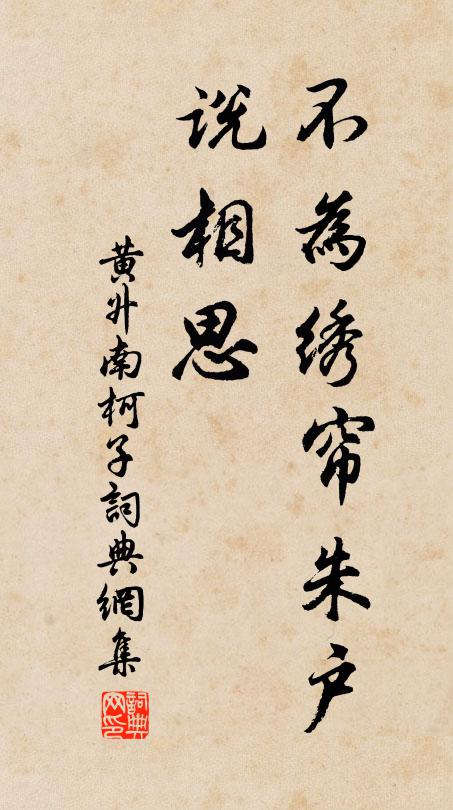 不為绣帘朱户
说相思
黄升南柯子詞典網集
詞典网印